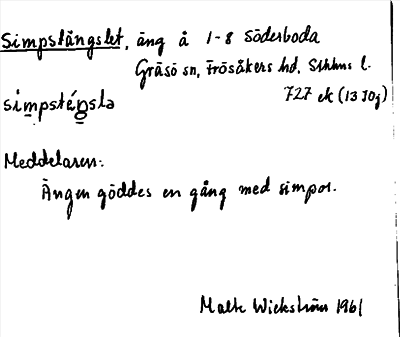 Simpstängslet, äng å 1-8 Söderboda
Gräsö sn, Frösåkers hd, Sthlms l.
727 ek (13 J0j)
simpsténsla
Meddelaren:
Ängen göddes en gång med simpor.
Malte Wickström 1961